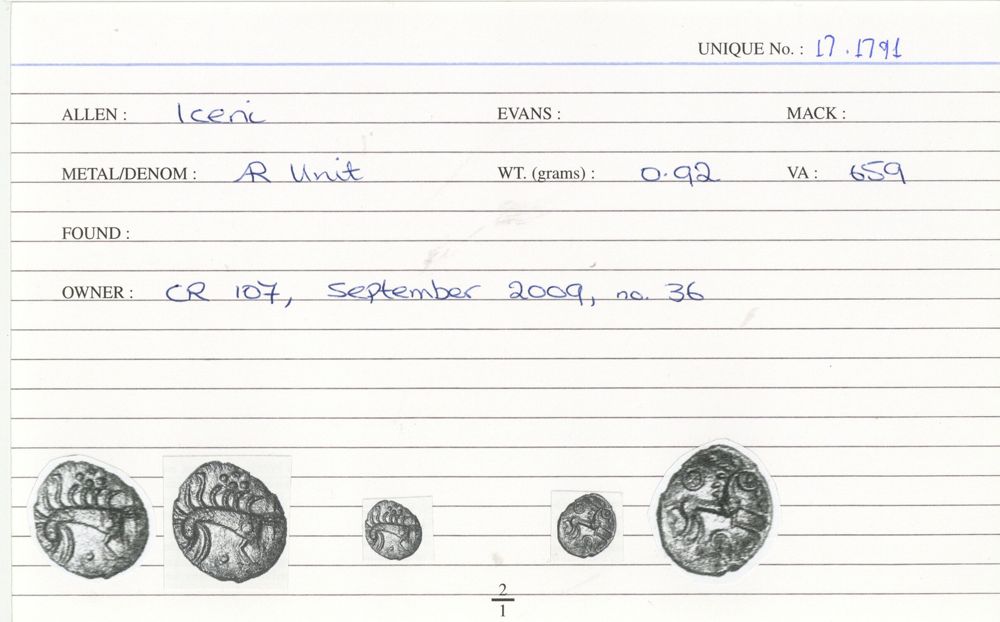 UNIQUE No. : 17.1791
ALLEN : Iceni EVANS : MACK :
METAL/DENOM : AR Unit WT. (grams) : 0.92 VA : 659
FOUND :
OWNER : CR 107, September 2009, no. 36
2
1